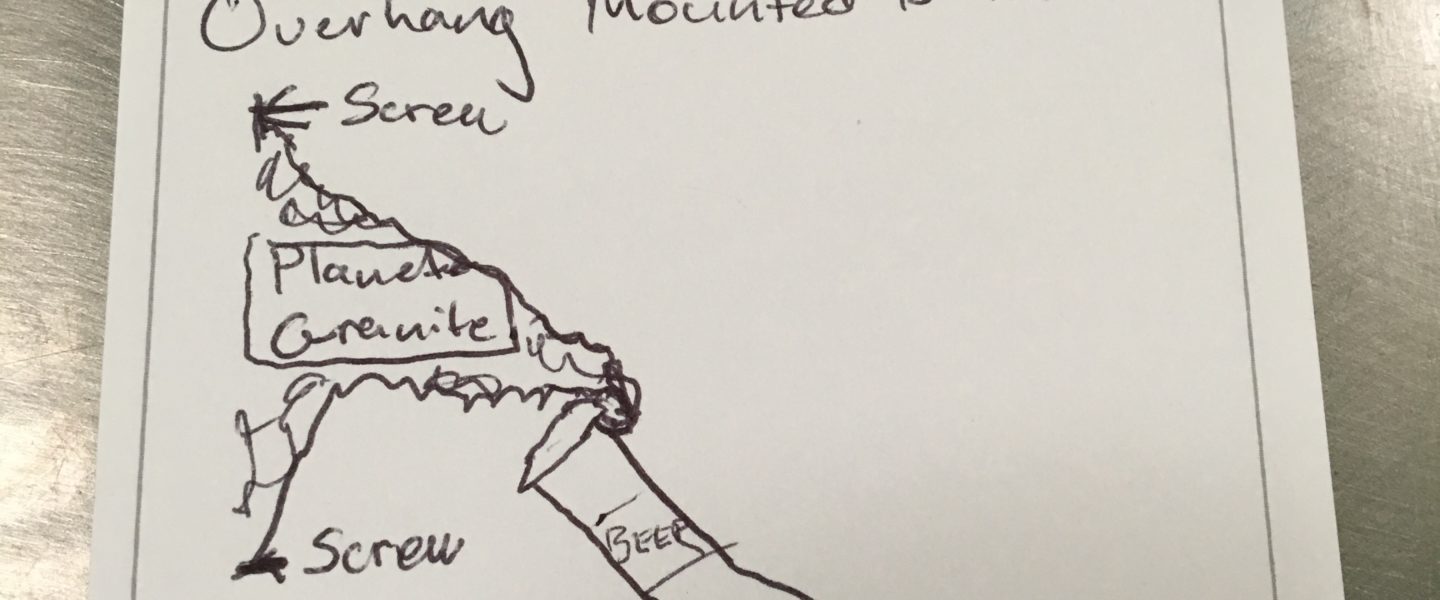 Overhang Mounted
Screw
Planet
Granite
BEER
Screw